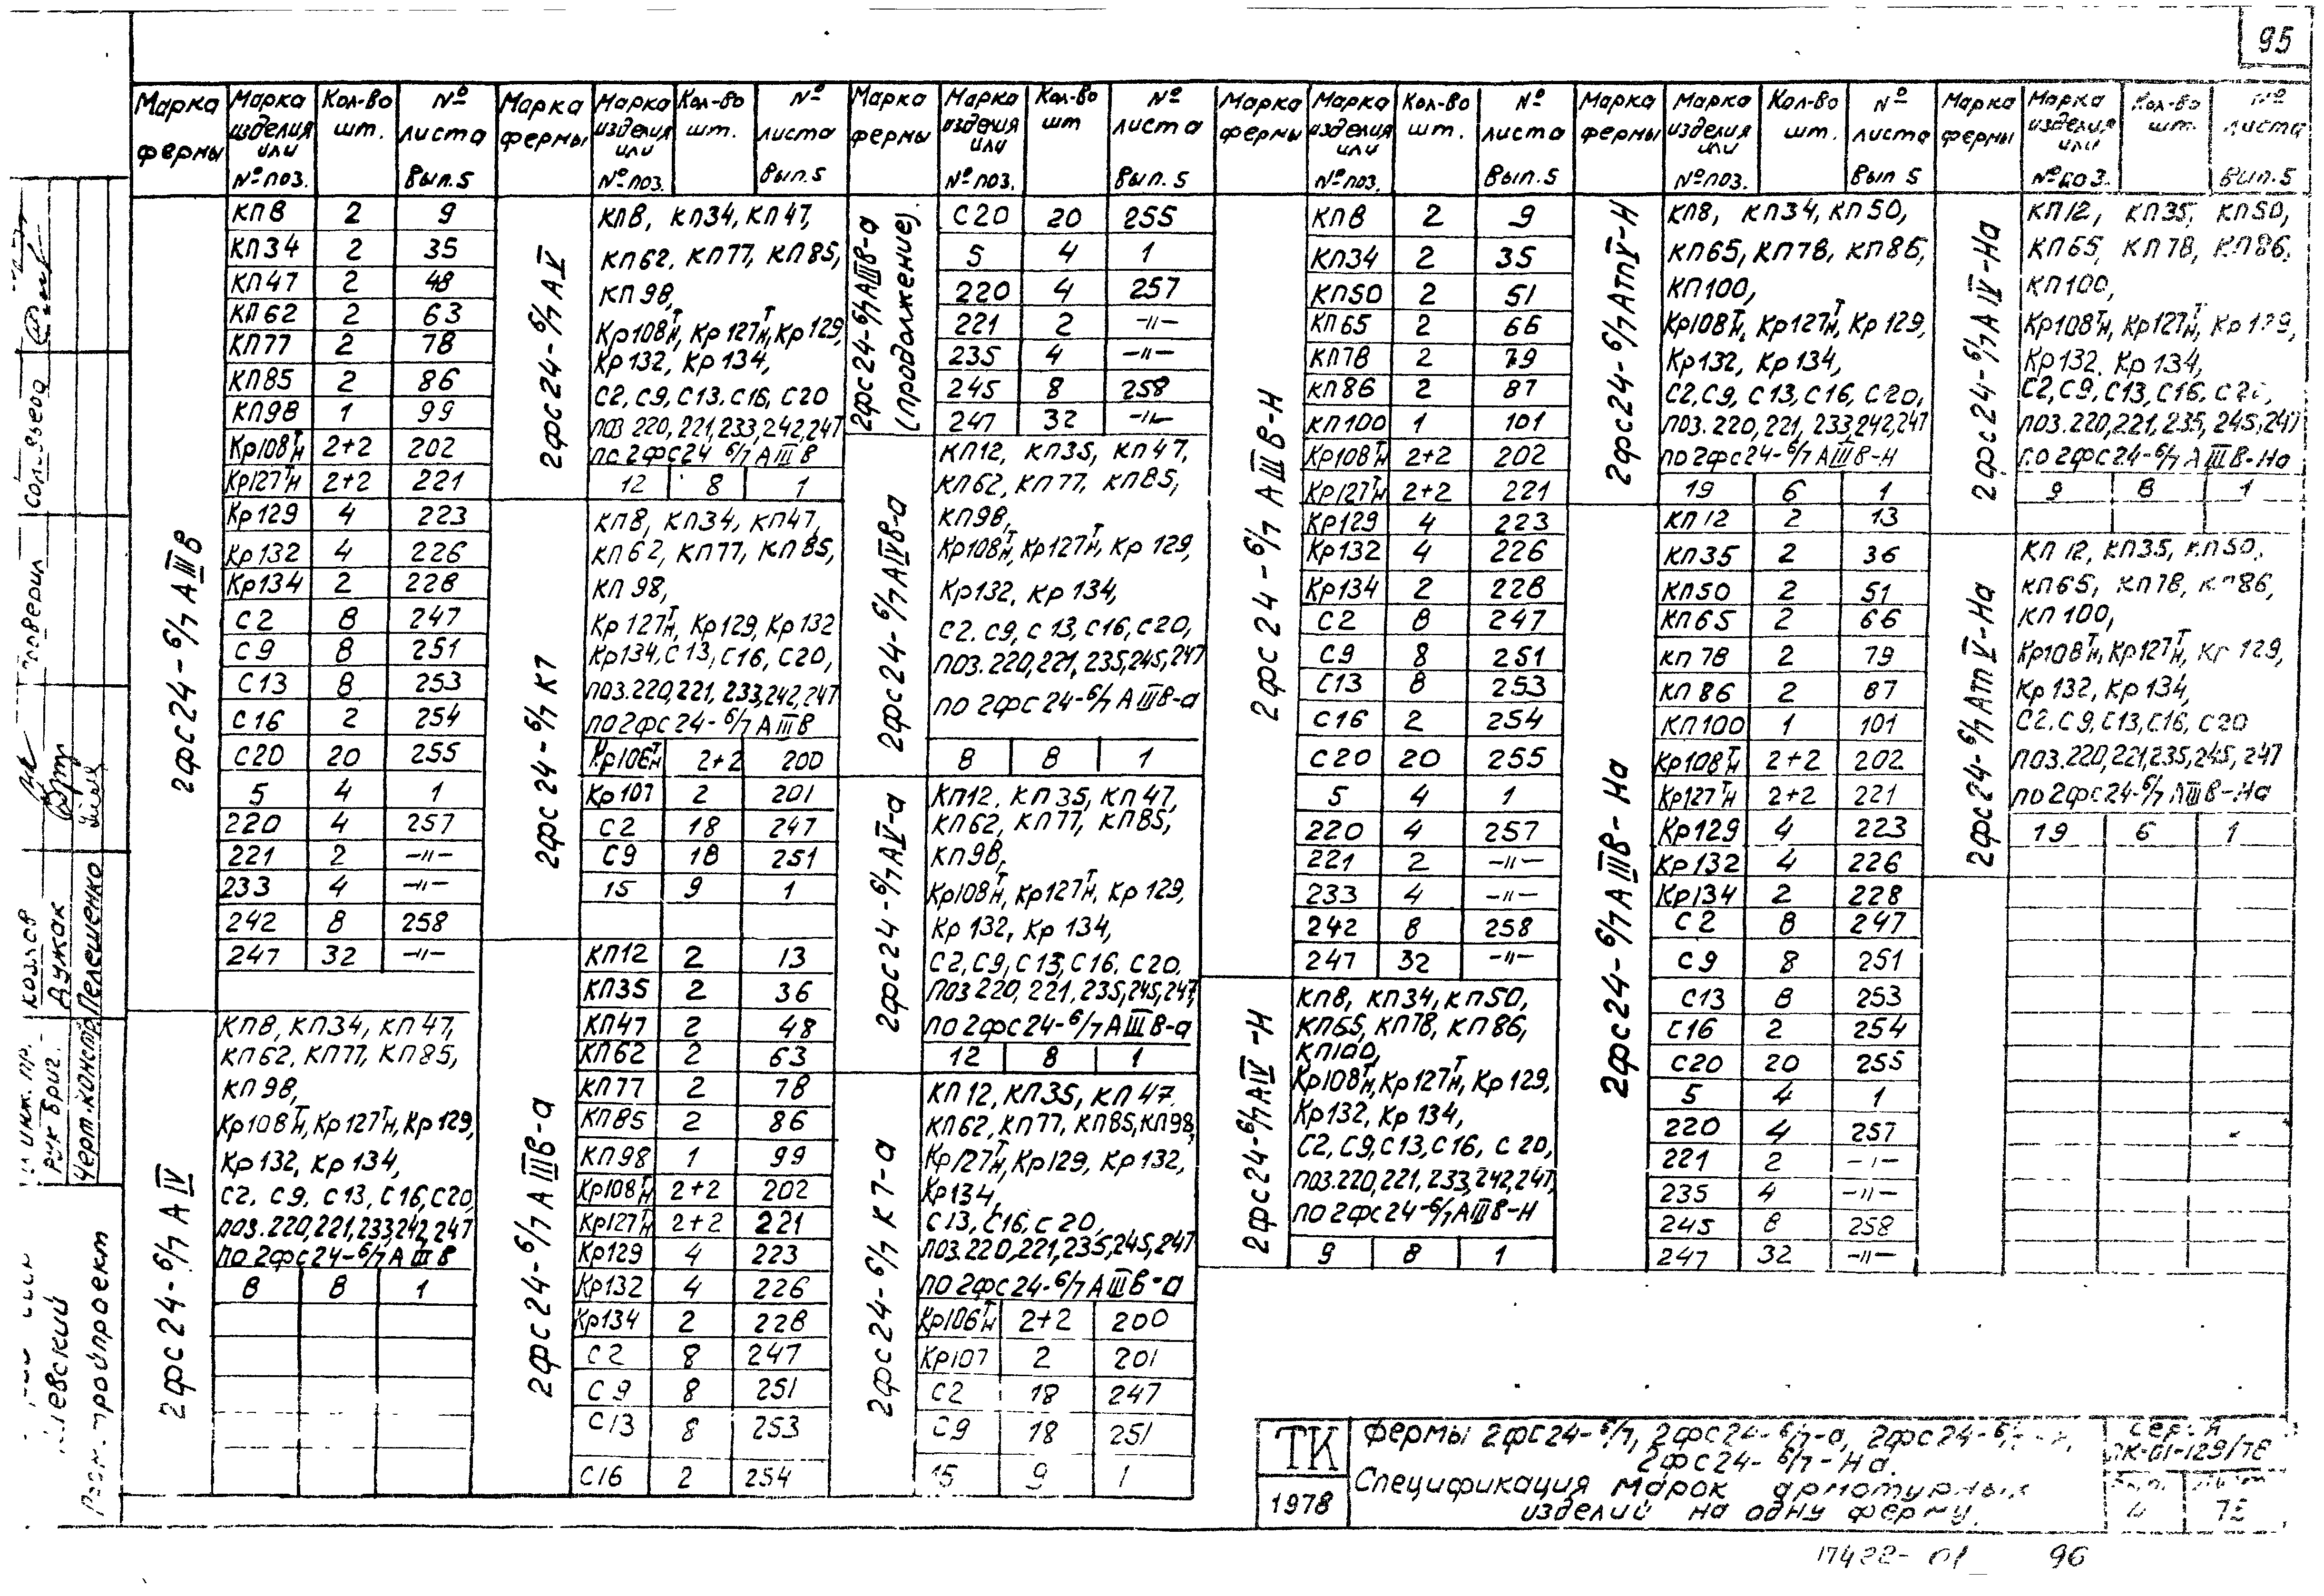 95
Марка фермы | Марка изделия или № поз. | Кол-во шт. | № листа Вып. 5
2фс24-6/7 АIIIв
КП8 2 9
КП34 2 35
КП47 2 48
КП62 2 63
КП77 2 78
КП85 2 86
КП98 1 99
Кр108ТН 2+2 202
Кр127ТН 2+2 221
Кр129 4 223
Кр132 4 226
Кр134 2 228
С2 8 247
С9 8 251
С13 8 253
С16 2 254
С20 20 255
5 4 1
220 4 257
221 2 —"—
233 4 —"—
242 8 258
247 32 —"—
2фс24-6/7 АIV
КП8, КП34, КП47,
КП62, КП77, КП85,
КП98,
Кр108ТН, Кр127ТН, Кр129,
Кр132, Кр134,
С2, С9, С13, С16, С20,
поз. 220, 221, 233, 242, 247
по 2фс24-6/7 АIIIв
8 8 1
Марка фермы | Марка изделия или № поз. | Кол-во шт. | № листа Вып. 5
2фс24-6/7 АV
КП8, КП34, КП47,
КП62, КП77, КП85,
КП98,
Кр108ТН, Кр127ТН, Кр129,
Кр132, Кр134,
С2, С9, С13. С16, С20
поз 220, 221, 233, 242, 247
по 2фс24 6/7 АIIIв
12 8 1
2фс24-6/7 К7
КП8, КП34, КП47,
КП62, КП77, КП85,
КП98,
Кр127ТН, Кр129, Кр132
Кр134, С13, С16, С20,
поз. 220, 221, 233, 242, 247
по 2фс24-6/7 АIIIв
Кр106ТН 2+2 200
Кр107 2 201
С2 18 247
С9 18 251
15 9 1
2фс24-6/7 АIIIв-а
КП12 2 13
КП35 2 36
КП47 2 48
КП62 2 63
КП77 2 78
КП85 2 86
КП98 1 99
Кр108ТН 2+2 202
Кр127ТН 2+2 221
Кр129 4 223
Кр132 4 226
Кр134 2 228
С2 8 247
С9 8 251
С13 8 253
С16 2 254
Марка фермы | Марка изделия или № поз. | Кол-во шт | № листа Вып. 5
2фс24-6/7 АIIIв-а (продолжение).
С20 20 255
5 4 1
220 4 257
221 2 —"—
235 4 —"—
245 8 258
247 32 —"—
2фс24-6/7 АIVв-а
КП12, КП35, КП47,
КП62, КП77, КП85,
КП98,
Кр108ТН, Кр127ТН, Кр129,
Кр132, Кр134,
С2. С9, С13, С16, С20,
поз. 220, 221, 235, 245, 247
по 2фс24-6/7 АIIIв-а
8 8 1
2фс24-6/7 АV-а
КП12, КП35, КП47,
КП62, КП77, КП85,
КП98,
Кр108ТН, Кр127ТН, Кр129,
Кр132, Кр134,
С2, С9, С13, С16. С20,
поз 220, 221, 235, 245, 247,
по 2фс24-6/7 АIIIв-а
12 8 1
2фс24-6/7 К7-а
КП12, КП35, КП47,
КП62, КП77, КП85, КП98,
Кр127ТН, Кр129, Кр132,
Кр134,
С13, С16, С20,
поз. 220, 221, 235, 245, 247
по 2фс24-6/7 АIIIв-а
Кр106ТН 2+2 200
Кр107 2 201
С2 18 247
С9 18 251
15 9 1
Марка фермы | Марка изделия или № поз. | Кол-во шт. | № листа Вып. 5
2фс24-6/7 АIIIв-Н
КП8 2 9
КП34 2 35
КП50 2 51
КП65 2 66
КП78 2 79
КП86 2 87
КП100 1 101
Кр108ТН 2+2 202
Кр127ТН 2+2 221
Кр129 4 223
Кр132 4 226
Кр134 2 228
С2 8 247
С9 8 251
С13 8 253
С16 2 254
С20 20 255
5 4 1
220 4 257
221 2 —"—
233 4 —"—
242 8 258
247 32 —"—
2фс24-6/7 АIV-Н
КП8, КП34, КП50,
КП65, КП78, КП86,
КП100,
Кр108ТН, Кр127ТН, Кр129,
Кр132, Кр134,
С2, С9, С13, С16, С20,
поз. 220, 221, 233, 242, 247,
по 2фс24-6/7 АIIIв-Н
9 8 1
Марка фермы | Марка изделия или № поз. | Кол-во шт. | № листа Вып 5
2фс24-6/7 АтV-Н
КП8, КП34, КП50,
КП65, КП78, КП86,
КП100,
Кр108ТН, Кр127ТН, Кр129,
Кр132, Кр134,
С2, С9, С13, С16, С20,
поз. 220, 221, 233, 242, 247
по 2фс24-6/7 АIIIв-Н
19 6 1
2фс24-6/7 АIIIв-На
КП12 2 13
КП35 2 36
КП50 2 51
КП65 2 66
КП78 2 79
КП86 2 87
КП100 1 101
Кр108ТН 2+2 202
Кр127ТН 2+2 221
Кр129 4 223
Кр132 4 226
Кр134 2 228
С2 8 247
С9 8 251
С13 8 253
С16 2 254
С20 20 255
5 4 1
220 4 257
221 2 —"—
235 4 —"—
245 8 258
247 32 —"—
Марка фермы | Марка изделия или № поз. | Кол-во шт. | № листа Вып. 5
2фс24-6/7 АIV-На
КП12, КП35, КП50,
КП65, КП78, КП86,
КП100,
Кр108ТН, Кр127ТН, Кр129,
Кр132, Кр134,
С2, С9, С13, С16, С20,
поз. 220, 221, 235, 245, 247
по 2фс24-6/7 АIIIв-На
9 8 1
2фс24-6/7 АтV-На
КП12, КП35, КП50,
КП65, КП78, КП86,
КП100,
Кр108ТН, Кр127ТН, Кр129,
Кр132, Кр134,
С2. С9, С13, С16, С20
поз. 220, 221, 235, 245, 247
по 2фс24-6/7 АIIIв-На
19 6 1
проверил
Соловьева
Козлов
Рук бриг.
Дужак
Черт.-констр.
Пелешенко
Киевский
Промстройпроект
ТК
1978
Фермы 2фс24-6/7, 2фс24-6/7-а, 2фс24-6/7-Н,
2фс24-6/7-На.
Спецификация марок арматурных
изделий на одну ферму.
Серия
ПК-01-129/78
Вып. 4
Лист 75
17422-01 96